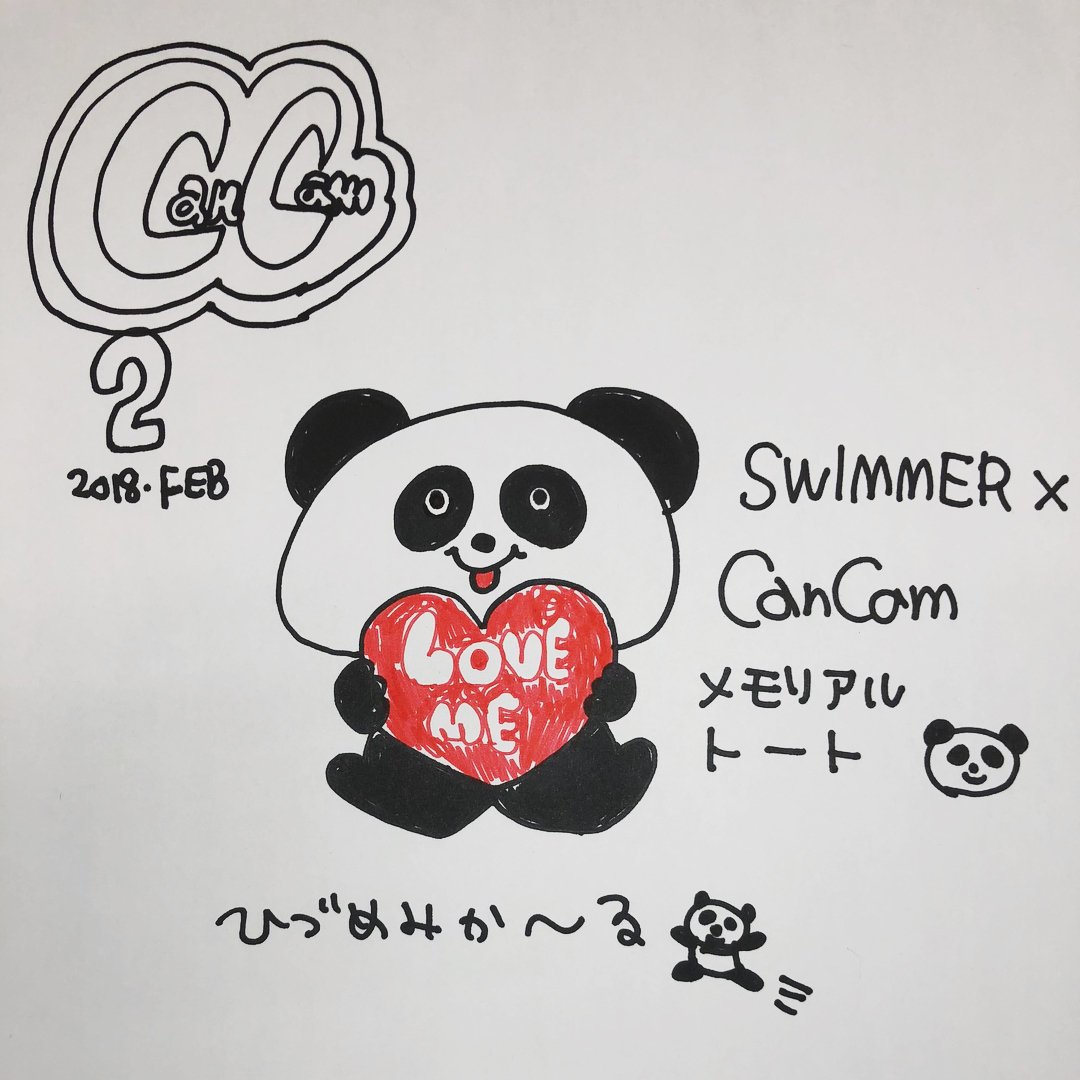 CanCam
2
2018.FEB
SWIMMER ×
CanCam
メモリアル
トート
LOVE
ME
ひづめみか〜る